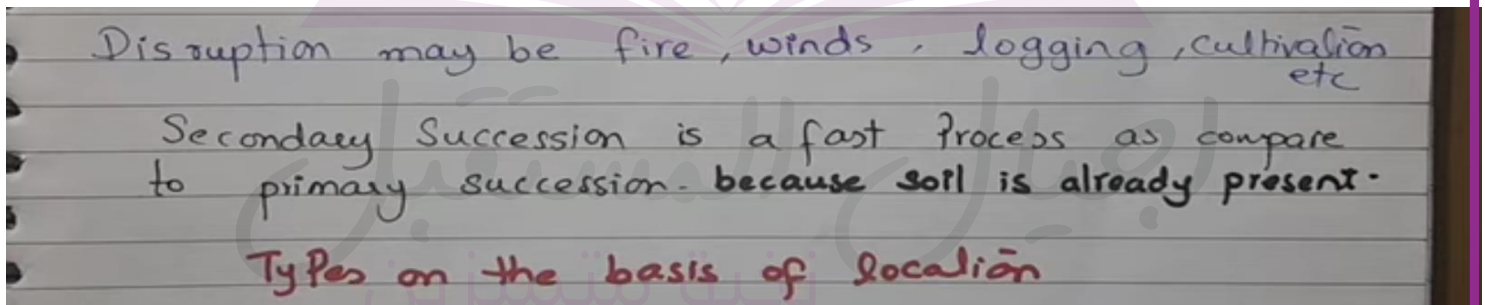 Disruption may be fire, winds, logging, cultivation
etc
Secondary Succession is a fast Process as compare
to primary succession. because soil is already present.
Types on the basis of location